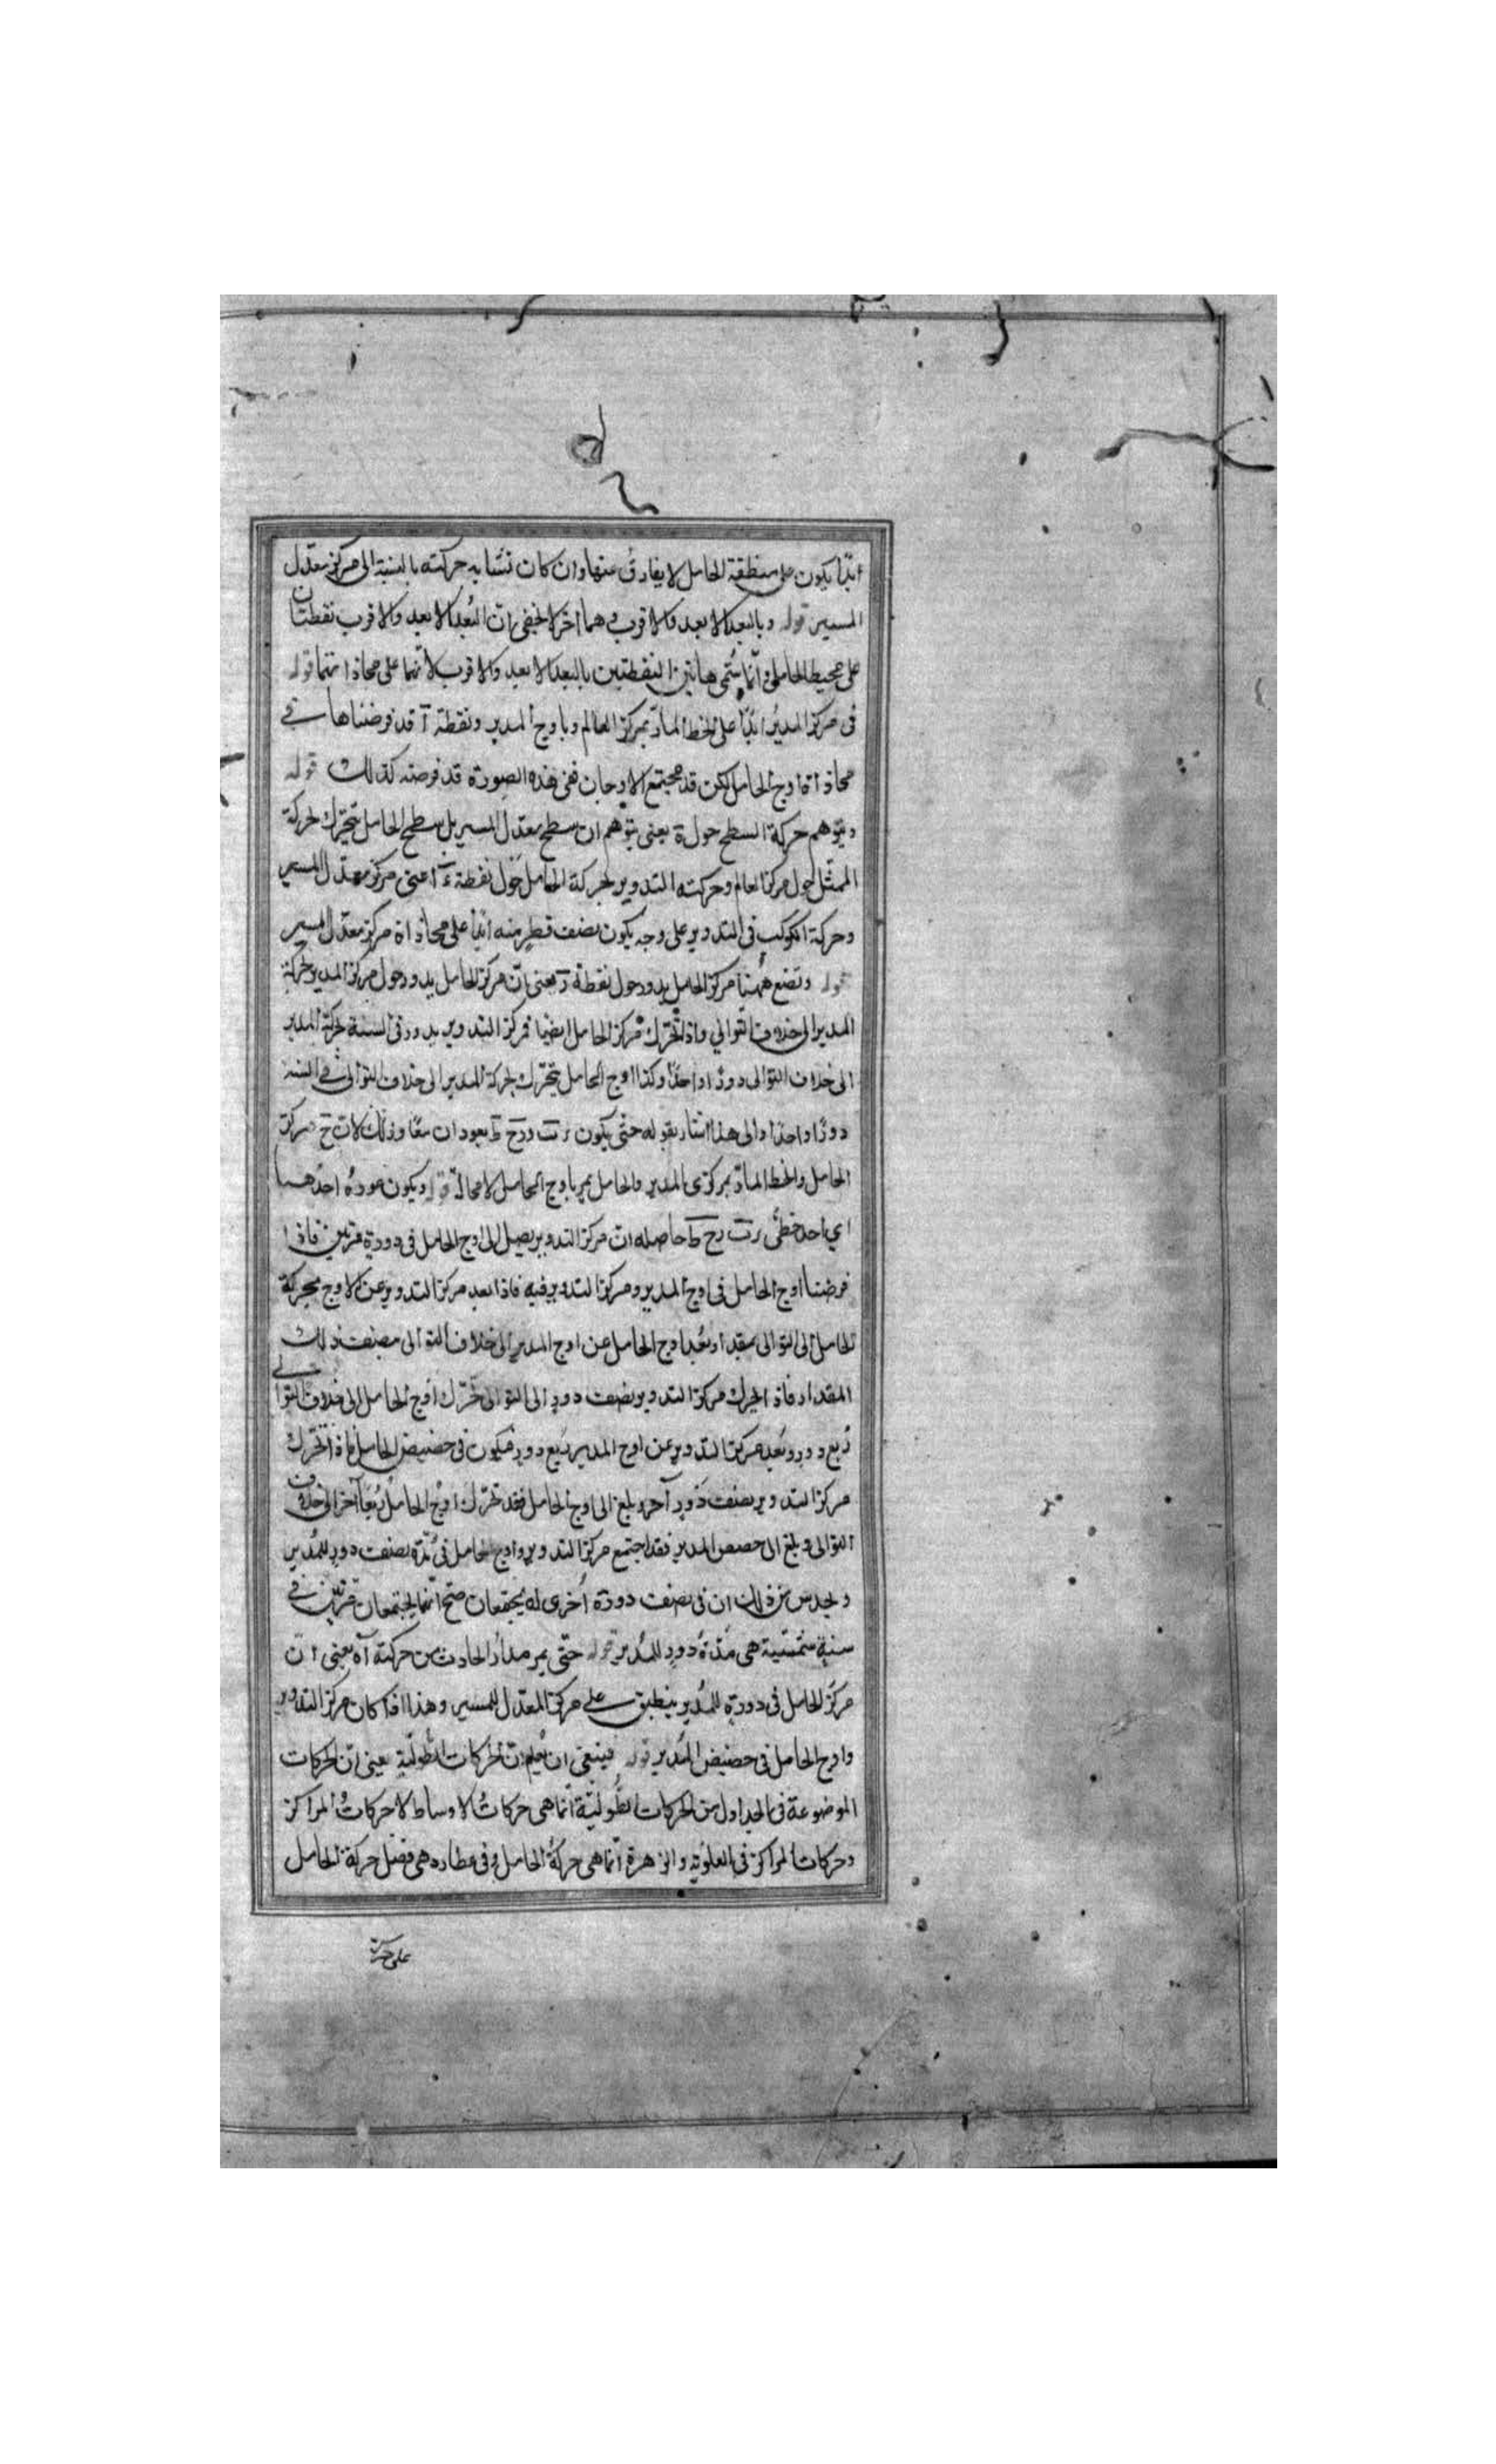 ابدًا يكون على منطقة الحامل لا يفارق عنها وان كان تشابه حركته بالنسبة الى مركز معدّل
المسير قوله وبالبعد الابعد والاقرب وهما اخر لا يخفى ان البُعد الابعد والاقرب نقطتان
على محيط الحامل وانّما سُمّى هاتين النقطتين بالبعد الابعد والاقرب لانّهما على محاذاتهما قوله
فى مركز المدير ابدًا على الخط المادّ بمركز العالم وباوج المدير ونقطة آ قد فرضناها في
محاذاة اوج الحامل لكن قد يجتمع الاوجان ففى هذه الصورة قد فرضته كذلك قوله
ويتوهم حركة السطح حول ة يعنى يتوهم ان سطح معدّل المسير بل سطح الحامل يتحرّك لحركة
الممثّل حول مركز العالم وحركته التدوير لحركة الحامل حول نقطة اعنى مركز معدّل المسير
وحركة الكوكب فى التدوير على وجه يكون نصف قطر منه ابدًا على محاذاة مركز معدّل المسير
قوله وتضع ههنا مركز الحامل يدور حول نقطة ر يعنى انّ مركز الحامل يدور حول مركز المدير لحركة
المدير الى خلاف التوالي واذا تحرّك مركز الحامل ايضًا فمركز التدوير يدور فى السنة لحركة المدير
الى خلاف التوالى دورًا واحدًا وكذا اوج الحامل يتحرّك لحركة المدير الى خلاف التوالى فى السنة
دورًا واحدًا والى هذا اشار بقوله حتى يكون رت ورح ط يعودان معًا وذلك لان ح مركز
الحامل والخط المادّ بمركزى المدير والحامل يمر باوج الحامل لا محالة قوله ويكون عودة احدهما
اي احد خطّى رت رح ط حاصله انّ مركز التدوير يصل الى اوج الحامل فى دورة مرتين فاذا
فرضنا اوج الحامل فى اوج المدير ومركز التدوير فيه فاذا بعد مركز التدوير عن الاوج بحركة
الحامل الى التوالى بمقدار بُعد اوج الحامل عن اوج المدير الى خلاف التوالى بنصف ذلك
المقدار فاذا تحرك مركز التدوير نصف دورٍ الى التوالى تحرّك اوج الحامل الى خلاف التوالي
رُبع دورٍ وبُعد مركز التدوير عن اوج المدير ربع دورٍ فيكون فى حضيض الحامل فاذا تحرّك
مركز التدوير نصف دَورٍ آخر وبلغ الى اوج الحامل فقد تحرّك اوج الحامل رُبعًا آخر الى خلاف
التوالى وبلغ الى حضيض المدير فقد اجتمع مركز التدوير واوج الحامل فى مُدّة نصف دورٍ للمُدير
ويحدس من ذلك ان فى نصف دورة اُخرى له يجتمعان صحّ انّهما يجتمعان مرّتين فى
سنةٍ شمسيّة هى مُدّةُ دورٍ للمُدير قوله حتّى يمر مدارُ الحادث من حركته آه يعنى انّ
مركز الحامل فى دورةٍ للمُدير ينطبق على مركز المعدّل للمسير وهذا اذا كان مركز التدوير
واوج الحامل فى حضيض المُدير قوله فينبغى ان يُعلم انّ الحركات الطّولية يعنى انّ الحركات
الموضوعة فى الجداول من الحركات الطّولية انّما هى حركاتُ الاوساط لا حركاتُ المراكز
وحركات المراكز فى العلوّية والزهرة انّما هى حركةُ الحامل وفى عطارد هى فضل حركة الحامل
على حركة